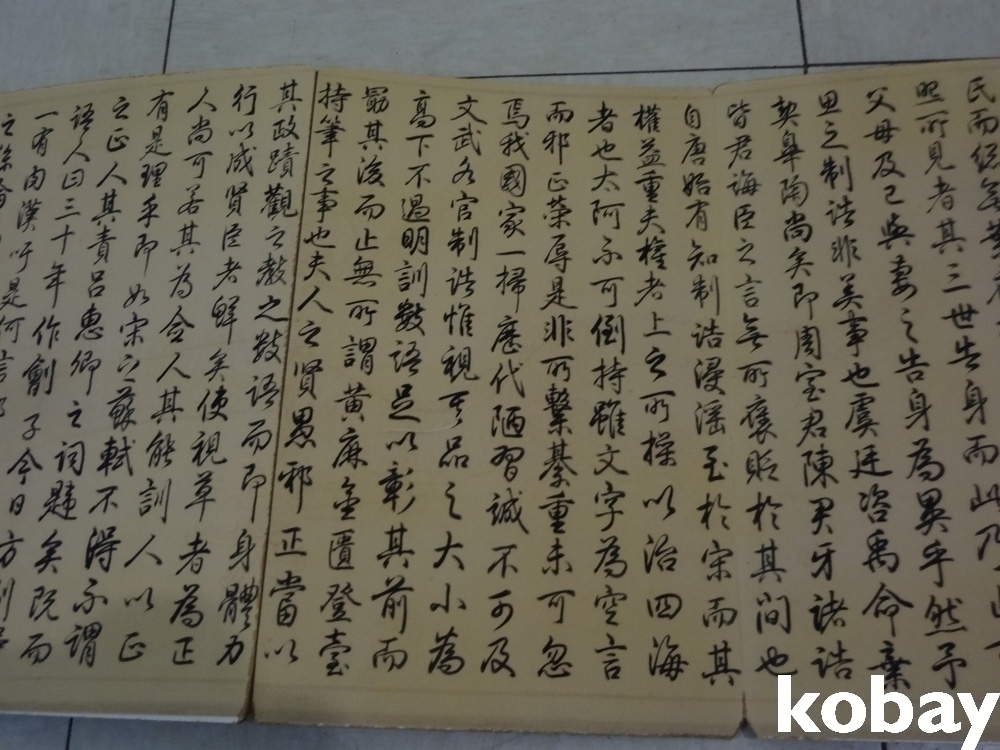 民而
照所見者其三世告身而此乃
父母及己與妻之告身為異乎然予
思之制誥非美事也虞廷咨禹命棄
契皋陶尚矣即周室君陳君牙諸誥
皆君誨臣之言無所褒貶於其間也
自唐始有知制誥浸淫至於宋而其
權益重夫權者上之所操以治四海
者也太阿不可倒持雖文字為空言
而邪正榮辱是非所繫綦重未可忽
焉我國家一掃歷代陋習誠不可及
文武各官制誥惟視其品之大小為
高下不過明訓數語足以彰其前而
勗其後而止無所謂黃麻金匱登臺
持筆之事也夫人之賢愚邪正當以
其政蹟觀之敎之數語而即身體力
行以成賢臣者鮮矣使視草者為正
人尚可若其為僉人其能訓人以正
有是理乎即如宋之蘇軾不得不謂
之正人其責呂惠卿之詞韙矣既而
語人曰三十年作劊子今日方剮
一有肉漢吁是何言
kobay